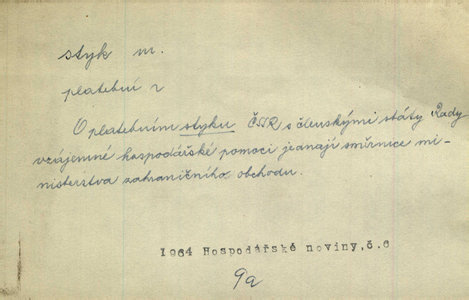 styk m.
platební
O platebním styku ČSSR s členskými státy Rady
vzájemné hospodářské pomoci jednají směrnice mi-
nisterstva zahraničního obchodu.
1964 Hospodářské noviny,č.6
9a